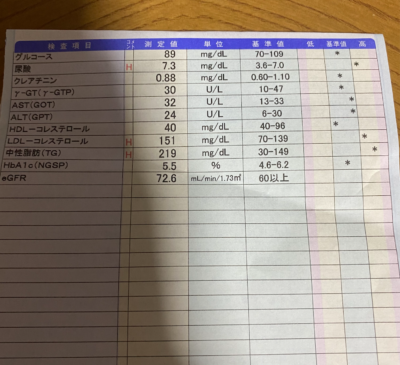 検査項目 コメント 測定値 単位 基準値 低 基準値 高
グルコース 89 mg/dL 70-109 *
尿酸 H 7.3 mg/dL 3.6-7.0 *
クレアチニン 0.88 mg/dL 0.60-1.10 *
γ-GT(γ-GTP) 30 U/L 10-47 *
AST(GOT) 32 U/L 13-33 *
ALT(GPT) 24 U/L 6-30 *
HDL-コレステロール 40 mg/dL 40-96 *
LDL-コレステロール H 151 mg/dL 70-139 *
中性脂肪(TG) H 219 mg/dL 30-149 *
HbA1c(NGSP) 5.5 % 4.6-6.2 *
eGFR 72.6 mL/min/1.73㎡ 60以上